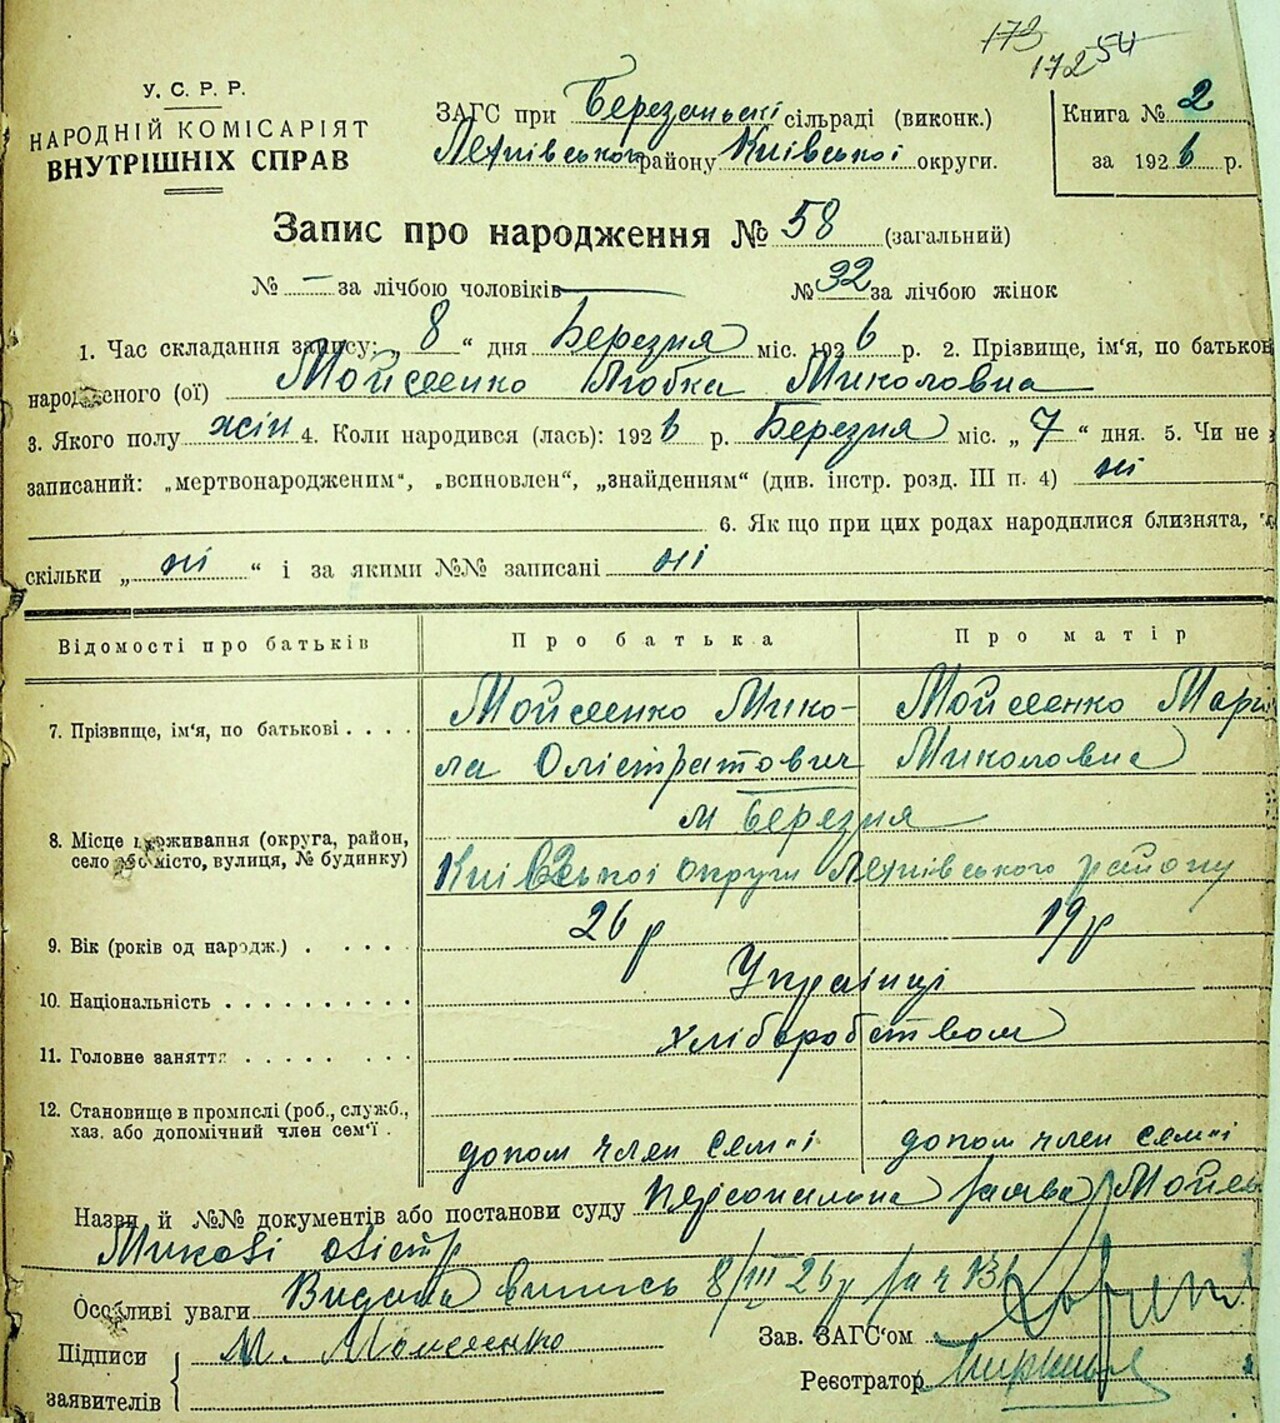 173
172 54
У. С. Р. Р.
НАРОДНІЙ КОМІСАРІЯТ
ВНУТРІШНІХ СПРАВ
ЗАГС при Березаньскі сільраді (виконк.)
району Київської округи.
Книга № 2
за 1926 р.
Запис про народження № 58 (загальний)
№ — за лічбою чоловіків № 32 за лічбою жінок
1. Час складання запису: „8“ дня Березня міс. 1926 р. 2. Прізвище, ім'я, по батьков
народженого (ої) Мойсеенко Любка Миколовна
3. Якого полу жін 4. Коли народився (лась): 1926 р. Березня міс. „7“ дня. 5. Чи не
записаний: „мертвонародженим“, „всиновлен“, „знайденням“ (див. інстр. розд. III п. 4) ні
6. Як що при цих родах народилися близнята,
скільки „ні“ і за якими №№ записані ні
Відомості про батьків Про батька Про матір
7. Прізвище, ім'я, по батькові . . . . Мойсеенко Мико- Мойсеенко Мари
ла Миколовна
м Березня
8. Місце проживання (округа, район,
село або місто, вулиця, № будинку) Київської округи району
9. Вік (років од народж.) . . . . . 26 р 19 р
10. Національність . . . . . . . . . . Українці
11. Головне заняття . . . . . . . . . хліборобством
12. Становище в промислі (роб., служб.,
хаз. або допомічний член сем'ї . допом член семʼі допом член семʼі
Назви й №№ документів або постанови суду персональна заява Мойсе
Особливі уваги Видана випись 8/III 26 р за ч
Підписи
заявителів М. Моисеенко
Зав. ЗАГС'ом
Реєстратор